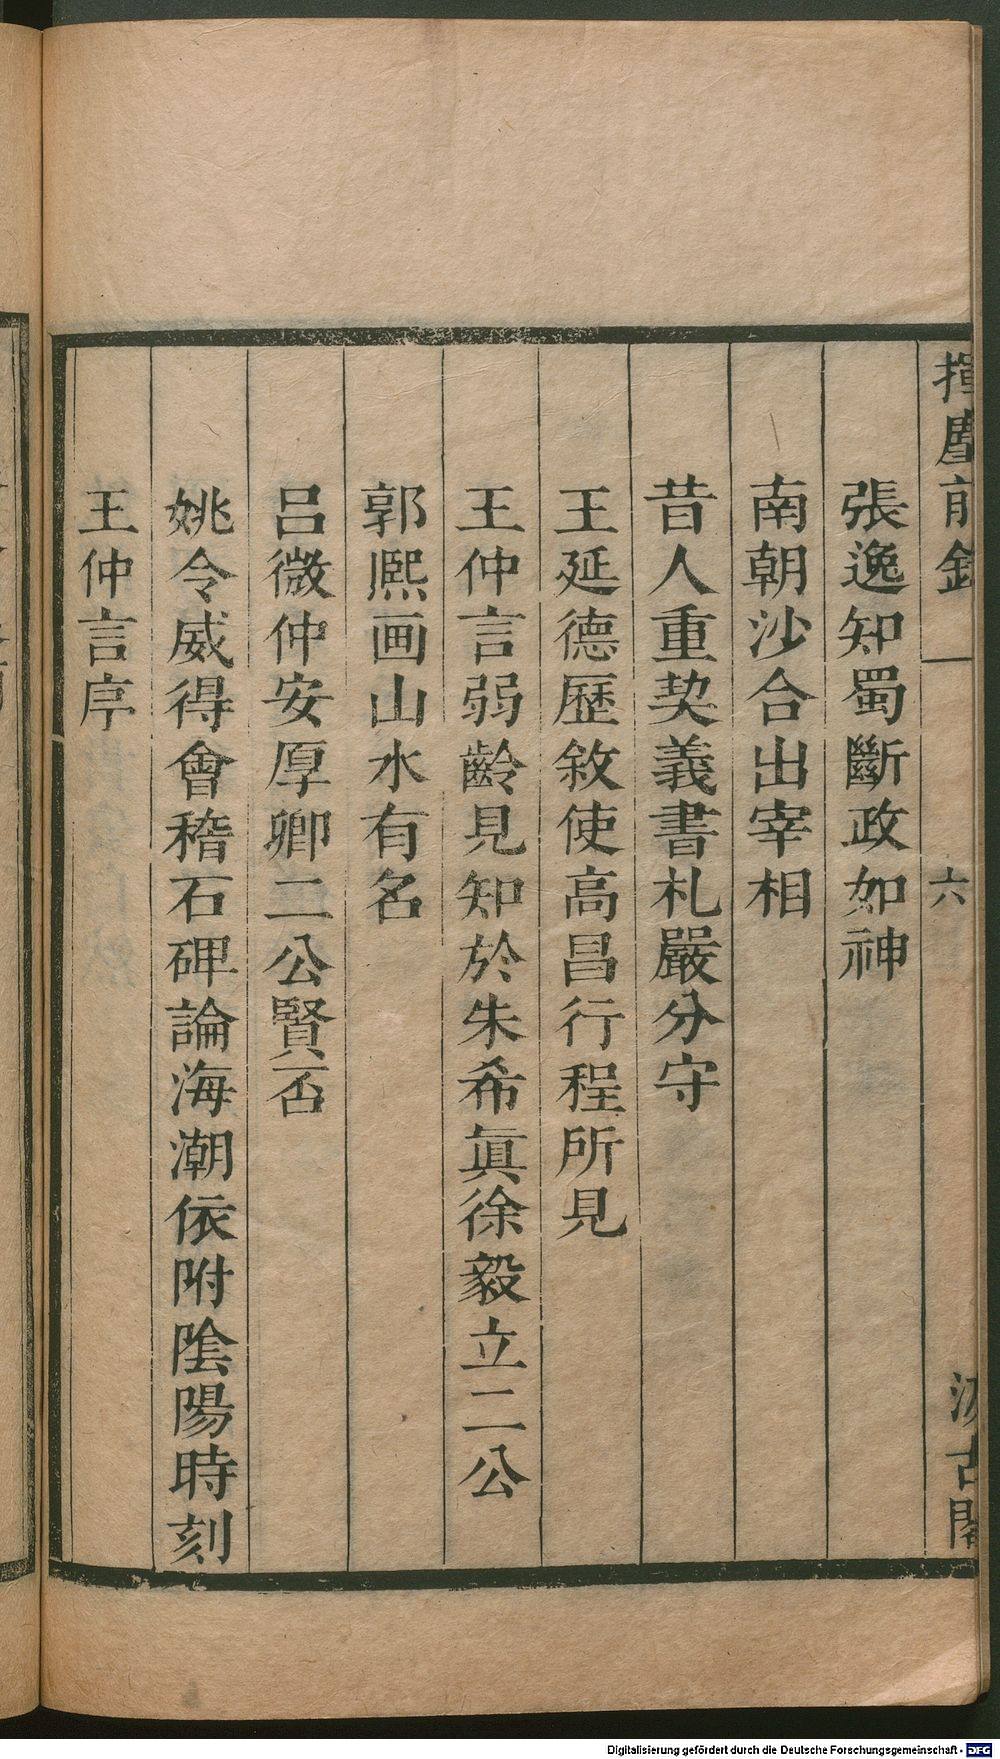 揮麈前錄
六
汲古閣
張逸知蜀斷政如神
南朝沙合出宰相
昔人重契義書札嚴分守
王延德歷敘使高昌行程所見
王仲言弱齡見知於朱希眞徐毅立二公
郭熈画山水有名
呂微仲安厚卿二公賢否
姚令威得會稽石碑論海潮依附陰陽時刻
王仲言序
Digitalisierung gefördert durch die Deutsche Forschungsgemeinschaft - DFG